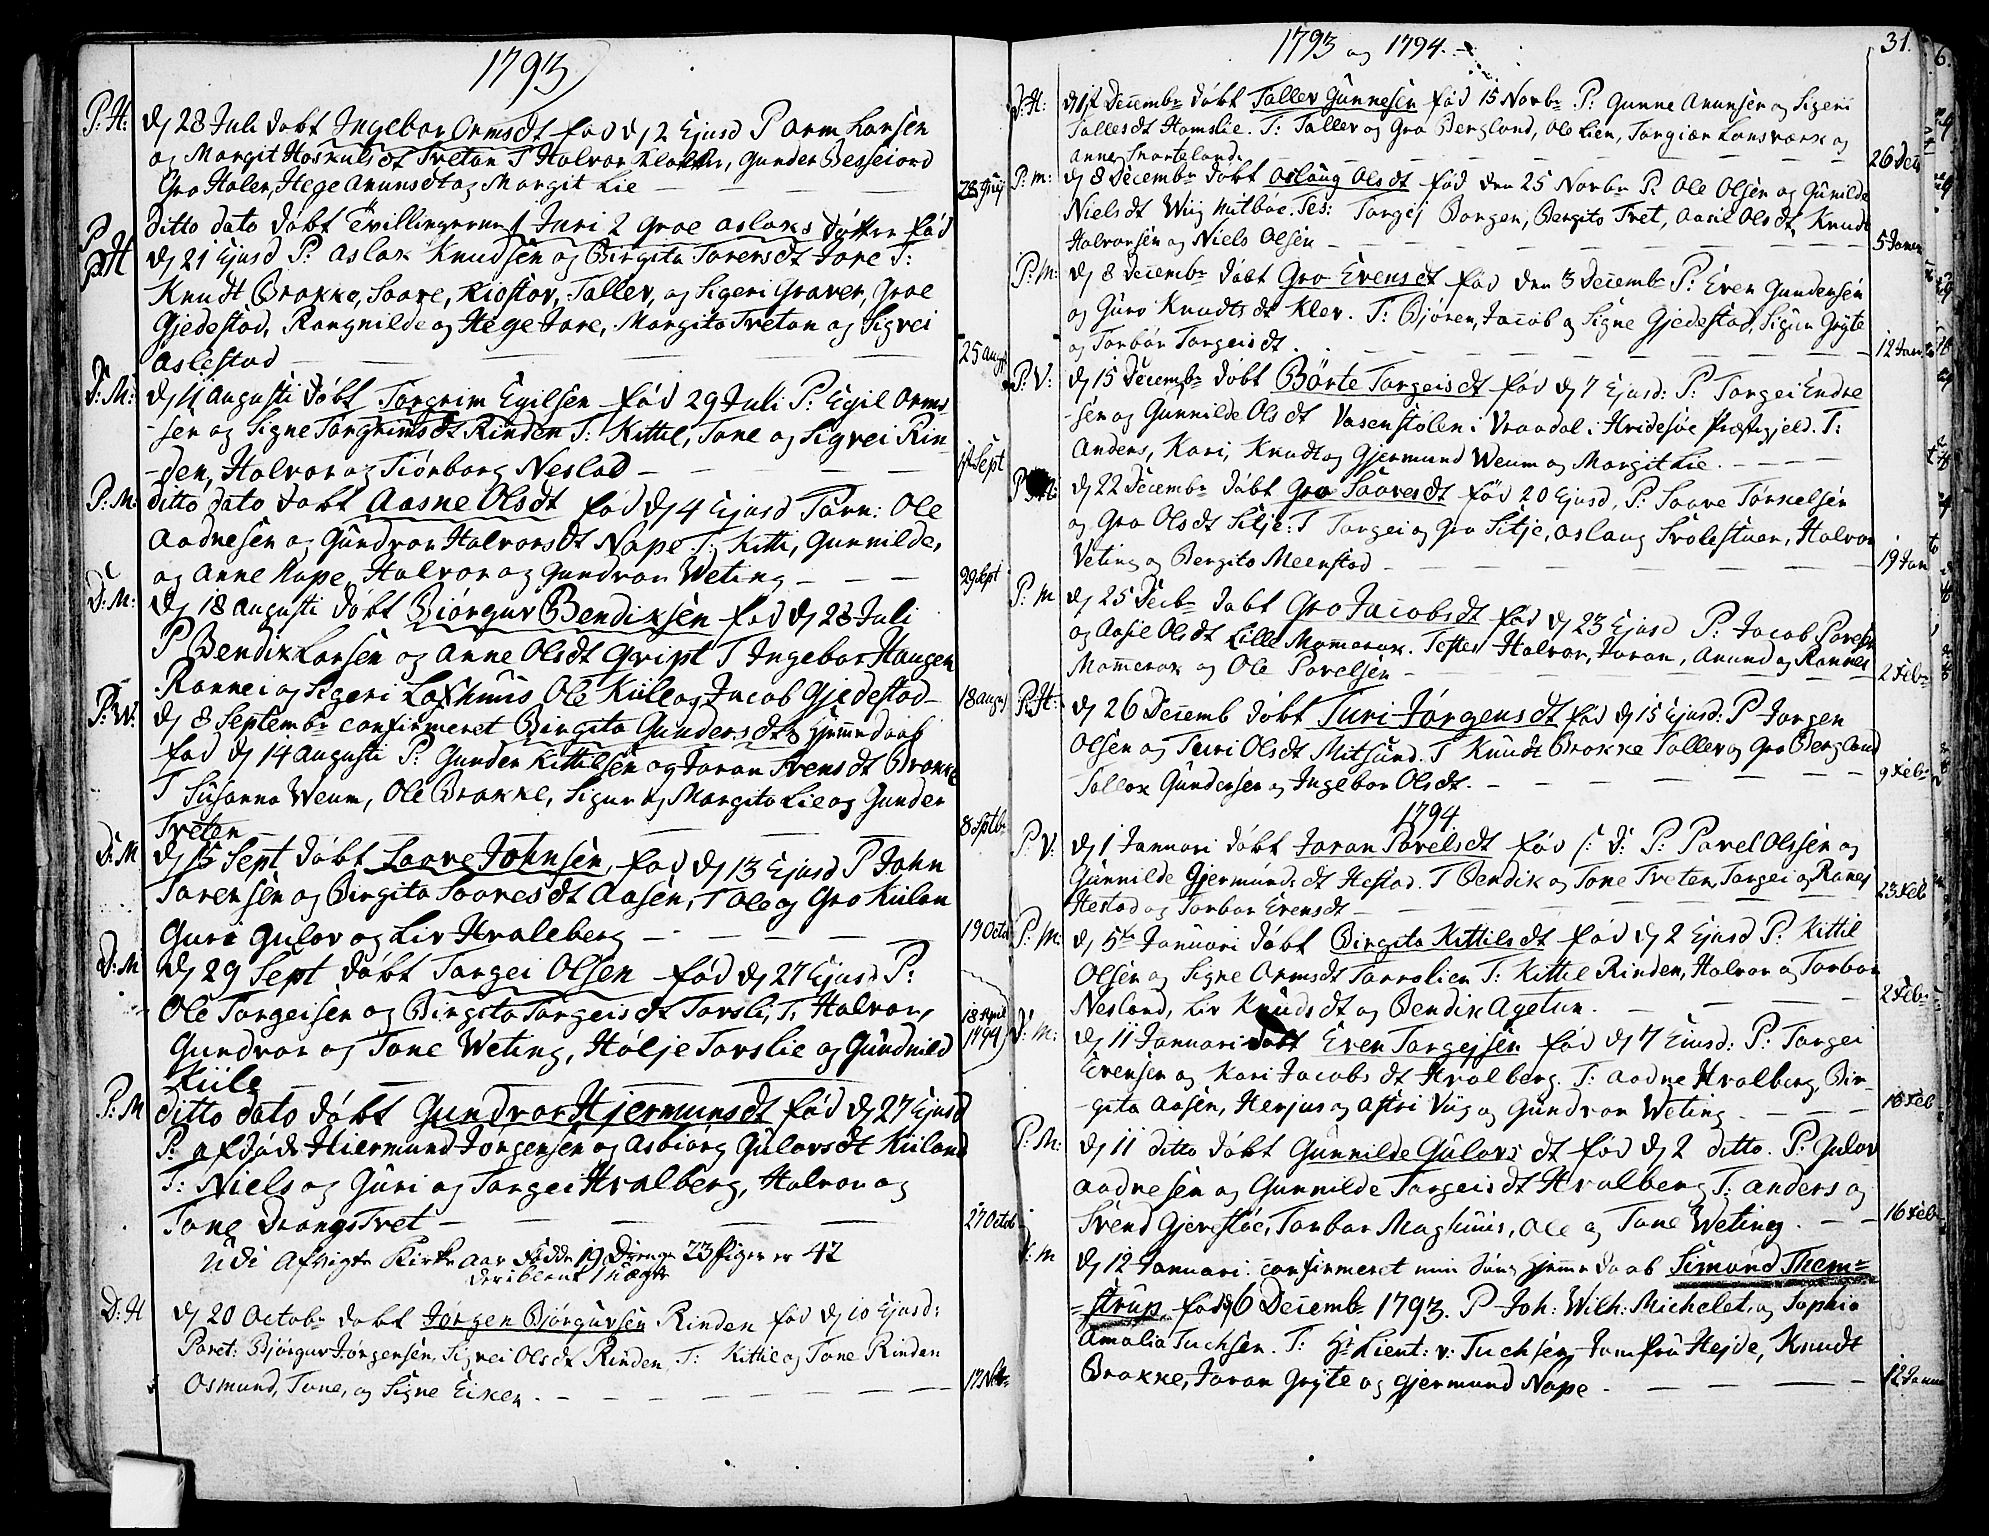 1793
P: H: dj 28 Juli døbt Ingebor Ormsdt fød dj 2 Ejusd P Orm Larsen
og Margit Hoskulsdt Tveten T Halvor Klokker, Gunder Besseiord
Gro Haler, Hege Anunsdt og Margit Lie
ditto dato døbt Tvillingerne 1 Juri 2 Groe Aslaks døttre fød
P: H dj 21 Ejusd P: Aslak Knudsen og Birgita Torersdt Jore T:
Knudt Brokke, Saave, Kiostov, Tallev, og Sigeri Graver, Groe
Gjedestad, Rangnilde og Hege Jore, Margita Tveten og Sigrei
Aslestad 25 Aug
D: M: dj 11 Augusti døbt Torgrim Egilsen fød 29 Juli P: Egil Orm-
-sen og Signe Torgrimsdt Rinden T: Kittil, Tone og Sigrei Rin-
-den, Halvor og Tiørborg Neslad 1st Sept
P: M: ditto dato døbt Aasne Olsdt fød dj 4 Ejusd Parn: Ole
Aadnesen og Gundvor Halvorsdt Nape T: Kitti, Gunnilde,
og Anne Nape, Halvor og Gundvor Weting 29 Sept
D: M: dj 18 Augusti døbt Biørgur Bendiksen fød dj 28 Juli
P Bendik Larsen og Anne Olsdt Gript T Ingebor Haugen
Rannei og Sigeri Loxhuus Ole Kiile og Jacob Gjedestad 18 Aug
P: W: dj 8 Septembr confirmeret Birgita Gundersdts Hjemedaab
fød dj 14 Augusti P: Gunder Kittilsen og Joran Svensdt Brokke
T Susanna Weum, Ole Brokke, Sigur og Margita Lie og Gunder
Tveten 8 Septbr
D: M dj 15 Sept, døbt Saave Johnsen, fød dj 13 Ejusd P John
Torensen og Birgita Saavesdt Aasen, T Ole og Gro Kiilen
Guri Gulov og Liv Hvaleberg 19 Octo
D: M dj 29 Sept døbt Torgei Olsen fød dj 27 Ejusd P:
Ole Torgeisen og Birgita Torgeisdt Torsli, T: Halvor, 18 April
Gundvor og Tone Weting, Hølje Torslie og Gundnild 1799
Kiile
P: M ditto dato døbt Gundvor Hjermunsdt fød dj 27 Ejusd
P: afdøde Hiermund Jørgensen og Asbiørg Gulovsdt Kiiland
T: Niels og Guri og Torgei Hvalberg, Halvor og
Tone Drangstvet 27 Octob
Udi Afvigte Kirke aar Fødde 19 Drenge 23 Piger er 42
deriblant 1 uægte
D: H dj 20 Octobr døbt Jørgen Biørgursen Rinden fød dj 10 Ejusd:
Paret: Biørgur Jørgensen, Sigrei Olsdt Rinden T: Kittil og Tone Rinden
Osmund, Tone, og Signe Eiken. 17 Nobr
1793 og 1794. 31.
D: H: dj 1st Decembr døbt Tallev Gunnesen fød 15 Novbr P: Gunne Anunsen og Sigeri
Tallesdt Homslie. T: Tallev og Gro Berglond, Ole Lien, Torgier Lonsværk og
Anne Snorteland. 26 Dec
P: M: dj 8 Decembr døbt Oslaug Olsdt fød den 25 Novbr P. Ole Olsen og Gunilde
Nielsdt Wiig Nutbøe. Tes: Torgej Borgen, Bergito Tvet, Aasil Olsdt, Knudt
Halvorsen og Niels Olsen 5 Janu
P: M: dj 8 Decembr døbt Gro Evensdt fød den 3 Decembr P: Even Gundersen
og Guro Knudtsdt Klev. T: Biøren, Jacob og Signe Gjedestad, Sigur Gryte
og Torbør Torgeisdt. 12 Jan
P: V: dj 15 Decembr døbt Børte Torgeisdt fød dj 7 Ejusd: P: Torgei Endre
-sen og Gunnilde Olsdt Vasenstølen i Vraadal i Hvidesøe Præstegjeld. T:
Anders, Kari, Knudt og Gjermund Weum og Margit Lie.
dj 22 Decembr døbt Gro Saavesdt fød 20 Ejusd, P: Saave Torkelsen
og Gro Olsdt Sitje: T Torgei og Gro Sitje, Oslaug Svolestuen, Halvor
Veting og Bergito Meenstad 19 Jan
P: M dj 25 Decbr døbt Gro Jacobsdt fød dj 23 Ejusd P: Jacob Povelsen
og Aasil Olsdt Lille Momerak. Testes Halvor, Joran, Anund og Rannei
Momerak og Ole Povelsen 2 Febr
P: H: dj 26 Decemb døbt Turi Jørgensdt fød dj 15 Ejusd: P Jørgen
Olsen og Turi Olsdt Mitsund. T Knudt Brokke Tallev og Gro Berglond
Tallak Gundersen og Ingebor Olsdt. 9 Febr
1794
P: V. dj 1 Januari døbt Joran Povelsdt fød s: D: P: Povel Olssen og
Gunnilde Gjermundsdt Hestad. T Bendik og Tone Treten, Torgei og Ranei
Hestad og Torbor Evensdt 23 Feb
P: M: dj 5te Januari døbt Birgita Kittilsdt fød dj 2 Ejusd P: Kittil
Olsen og Signe Ormsdt Torrolien T: Kittil Rinden, Halvor og Torbor
Nesland, Liv Knudsdt og Bendix Agetun. 2 Febr
D: M: dj 11 Januari døbt Even Torgejsen fød dj 7 Ejusd: P: Torgei
Evensen og Kari Jacobsdt Hvalberg. T: Aadne Hvalberg, Bir-
-gita Aasen, Herjus og Astri Viig og Gundvor Weting. 16 Feb
P: M: dj 11 ditto døbt Gunnilde Gulovsdt fød dj 2 ditto. P: Gulov
Aadnesen og Gunnilde Torgeisdt Hvalberg T: Anders og
Svend Gjerestøe, Torbor Maghuus, Ole og Tone Weting. 16 Febr
M dj 12 Januari confirmeret min Søns Hjemedaab Simund Them=
=strup fød dj 6 Decembr 1793. P Joh: Wilh: Michelet og Sophia
Amalia Tuchsen. T: Hr Lient: v: Tuchsen Jomfru Hejde, Knudt
Brokke, Joran Gryte og Gjermund Nape. 12 Janu